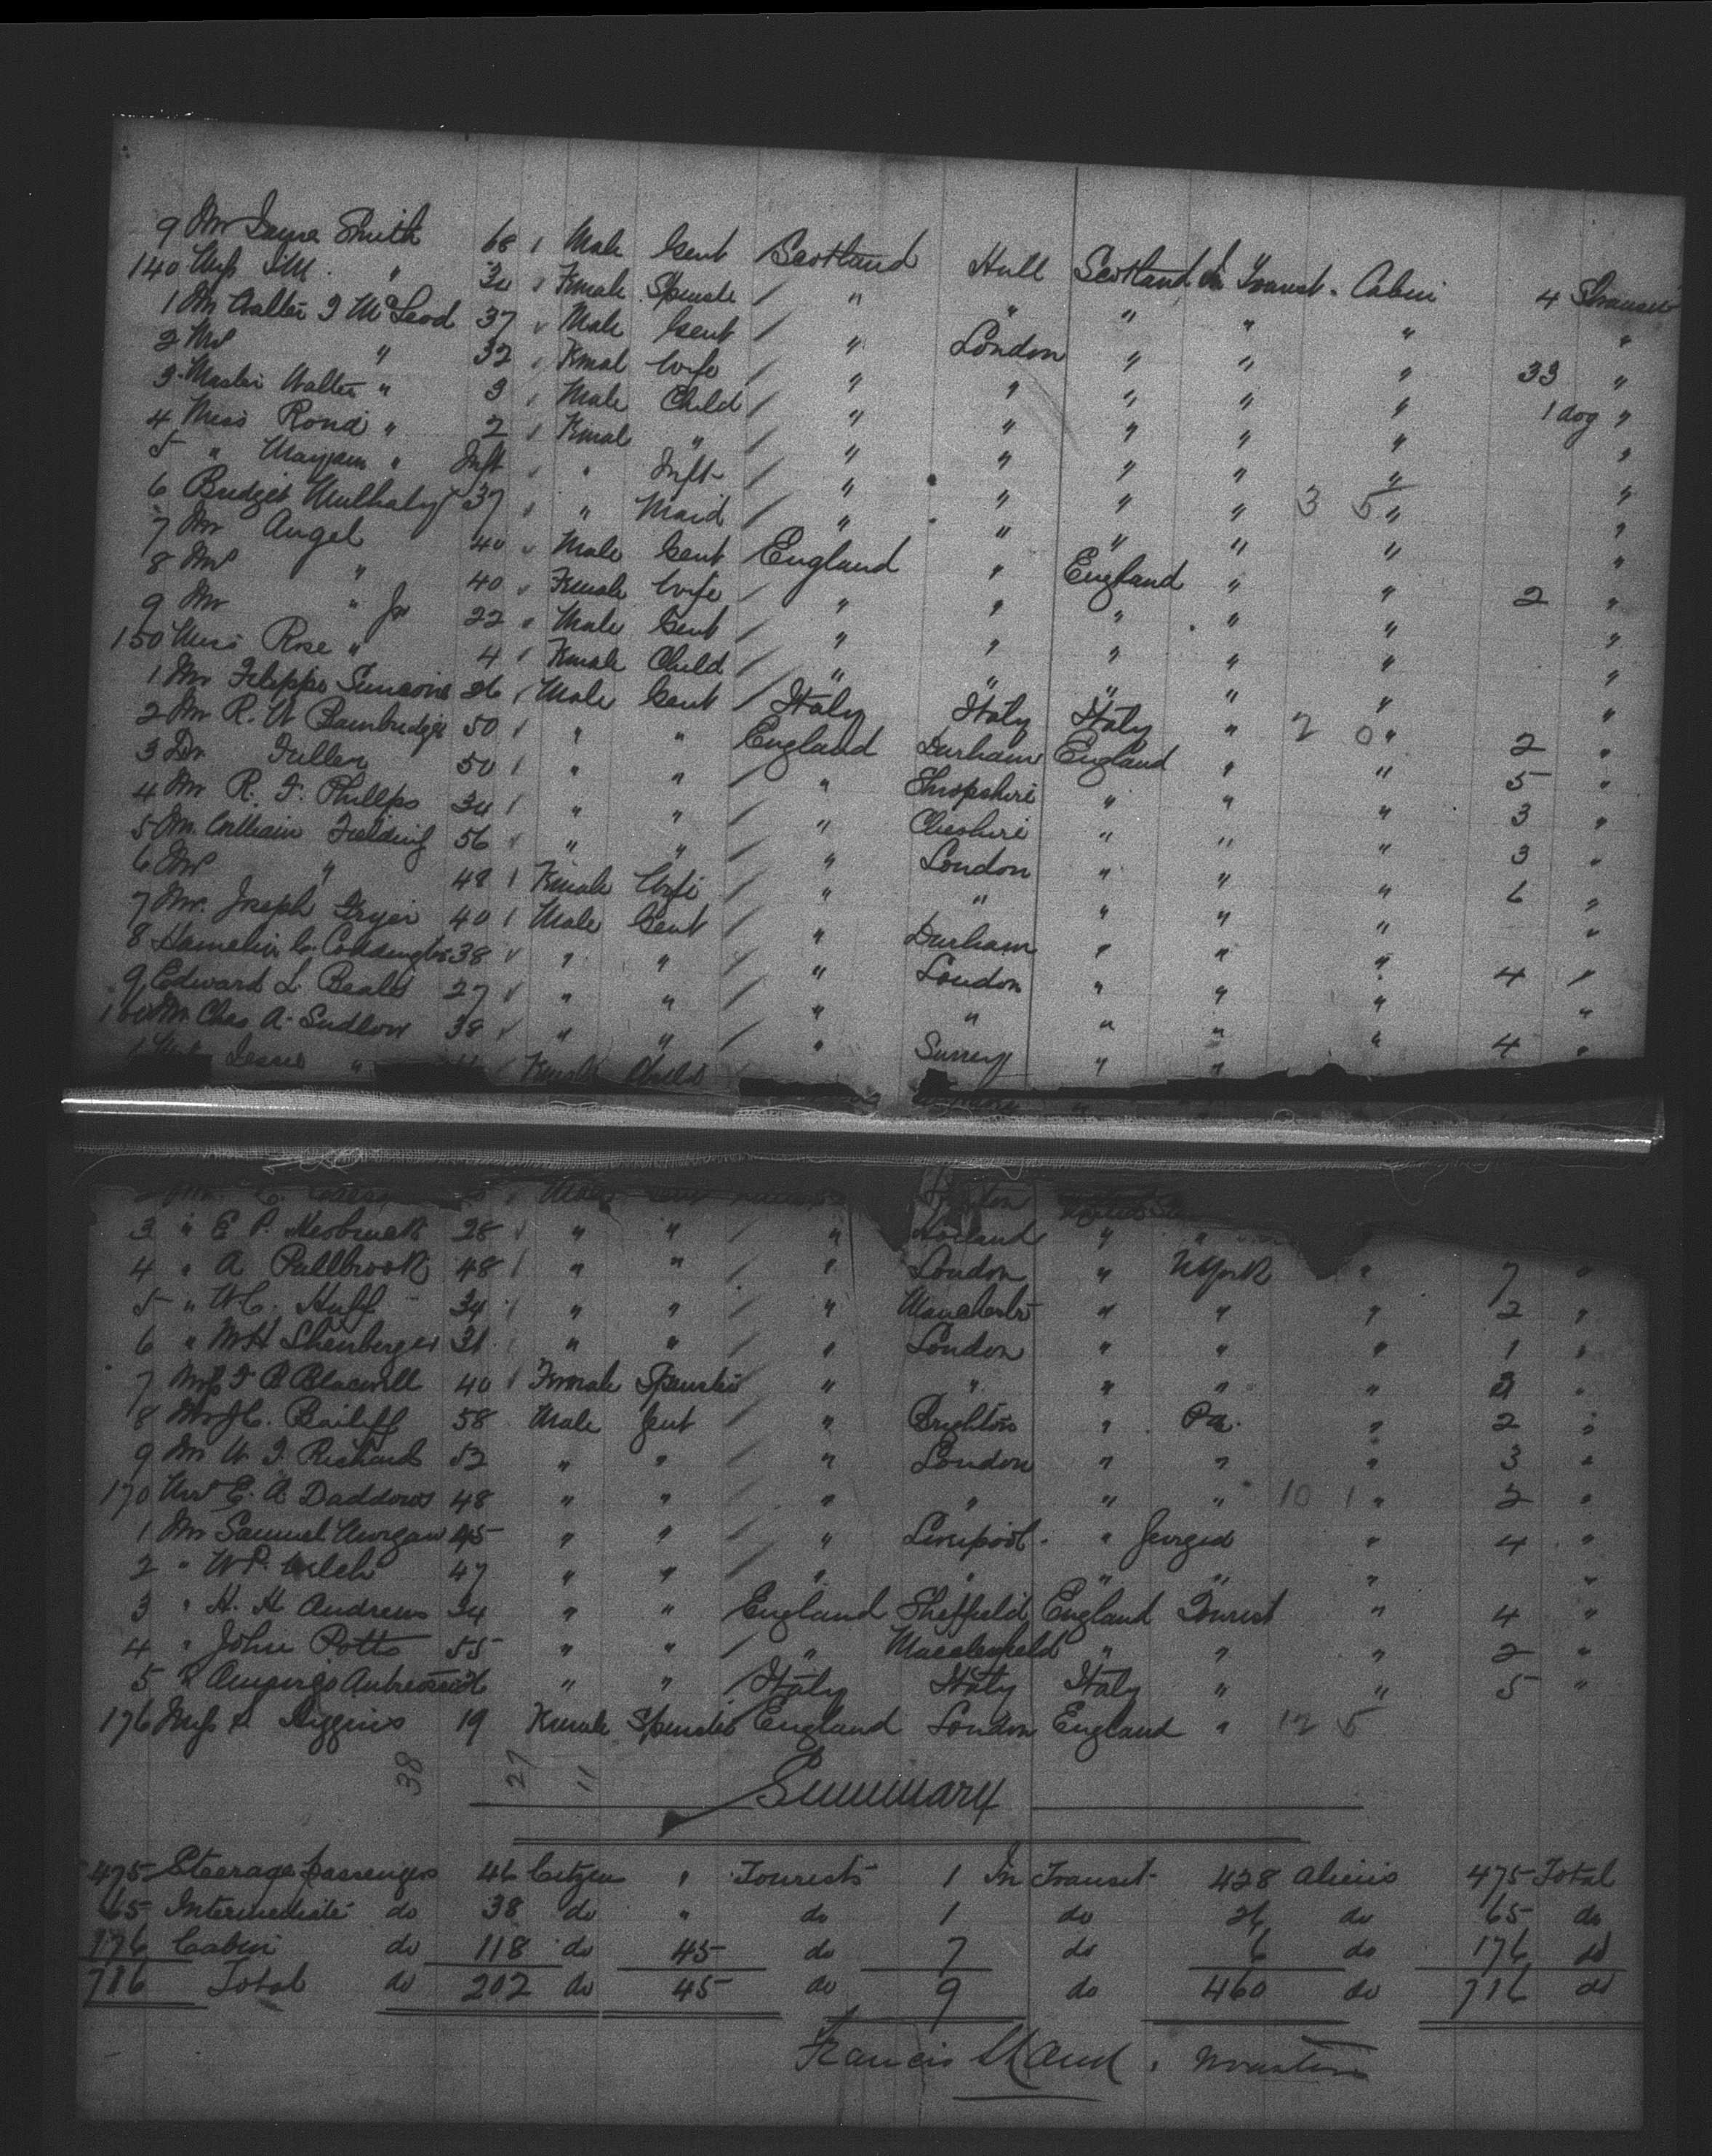 9 Mr Smith 68 Male Gent Scotland Hull Scotland In Transit. Cabin 4 
140 Miss " 30 Female Spinster " " " " " "
1 Mr Walter McLeod 37 Male Gent " London " " " 33 "
2 Mrs " 32 Female Wife " " " " " 1 dog "
3 Master Walter " 3 Male Child " " " " " "
4 Miss " 2 Female " " " " " " "
5 " " Inft " Inft " " " " " "
6 Bridget 37 " Maid " " " " 3 5 " "
7 Mr Angel 40 Male Gent England " England " " 2 "
8 Mrs " 40 Female Wife " " " " " "
9 Mr " Jr 22 Male Gent " " " " " "
150 Miss Rose " 4 Female Child " " " " " "
1 Mr 26 Male Gent Italy Italy Italy " 2 0 " 2 "
2 Mr R. W Bambridge 50 " " England Durham England " " 5 "
3 Dr Fuller 50 " " " Shropshire " " " 3 "
4 Mr R. F. Phillps 34 " " " Cheshire " " " 3 "
5 Mr. William Fielding 56 " " " London " " " 6 "
6 Mrs " 48 Female Wife " " " " " "
7 Mr. Joseph Fryer 40 Male Gent " Durham " " " 4 "
8 38 " " " London " " " "
9 Edward L. Beals 27 " " " " " " " 4 "
160 Mr Chas A. Sudlow 38 " " " Surrey " "
1 Jessie " Female Child
3 " E P. 28 " " " Holland " "
4 " A Pullbrook 48 " " " London " N York " 7 "
5 " W C. Huff 34 " " " Manchester " " " 2 "
6 " W H Shenberger 31 " " " London " " " 1 "
7 Miss F B 40 Female Spinster " " " " " "
8 Mr J C. Bailiff 58 Male Gent " Brighton " Pa. " 2 "
9 Mr W. J. Richard 52 " " " London " " " 3 "
170 E. A Daddow 48 " " " " " " 10 1 " 2 "
1 Mr Samuel Morgan 45 " " " Liverpool. " " 4 "
2 " W P. Welch 47 " " " " " " " "
3 " H. H Andrews 34 " " England Sheffield England Tourist " 4 "
4 " John Potts 55 " " " Macclesfield " " " 2 "
5 26 " " Italy Italy Italy " " 5 "
176 Miss Higgins 19 Female Spinster England London England " 12 5
38 27 11
Summary
475 Steerage passengers 46 Citizens " Tourists 1 In Transit 428 Aliens 475 Total
65 Intermediate do 38 do " do 1 do 26 do 65 do
176 Cabin do 118 do 45 do 7 do 6 do 176 do
716 Total do 202 do 45 do 9 do 460 do 716 do
Francis